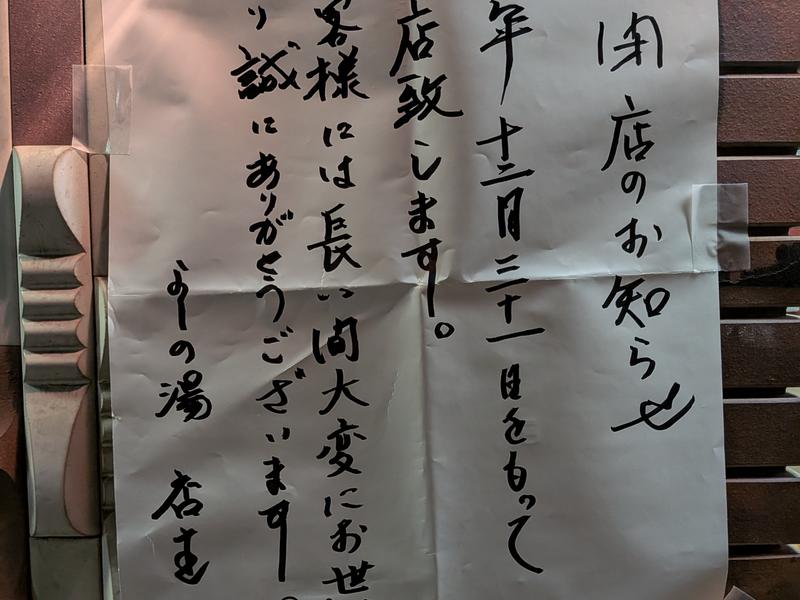 閉店のお知らせ
年十二月三十一日をもって
店致します。
客様には長い間大変にお世
り誠にありがとうございます。
よしの湯 店主